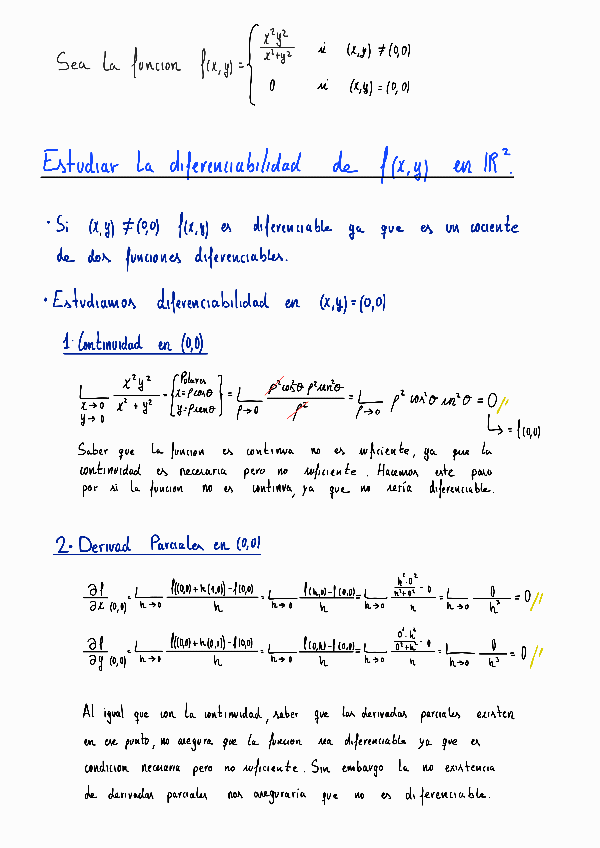 Sea la funcion f(x,y) = { x²y² / x²+y² si (x,y) ≠ (0,0)
0 si (x,y) = (0,0)
Estudiar la diferenciabilidad de f(x,y) en IR².
· Si (x,y) ≠ (0,0) f(x,y) es diferenciable ya que es un cociente
de dos funciones diferenciables.
· Estudiamos diferenciabilidad en (x,y) = (0,0)
1· Continuidad en (0,0)
L x→0 y→0 x²y² / x²+y² = [Polares x=ρcosθ y=ρsenθ] = L ρ→0 ρ²cos²θ ρ²sen²θ / ρ² = L ρ→0 ρ² cos²θ sen²θ = 0 //
↳ = f(0,0)
Saber que la funcion es continua no es suficiente, ya que la
continuidad es necesaria pero no suficiente. Hacemos este paso
por si la funcion no es continua, ya que no sería diferenciable.
2· Derivad Parciales en (0,0)
∂f/∂x (0,0) = L h→0 f((0,0)+h(1,0))-f(0,0) / h = L h→0 f(h,0)-f(0,0) / h = L h→0 (h²·0² / h²+0² - 0) / h = L h→0 0 / h³ = 0 //
∂f/∂y (0,0) = L h→0 f((0,0)+h(0,1))-f(0,0) / h = L h→0 f(0,h)-f(0,0) / h = L h→0 (0²·h² / 0²+h² - 0) / h = L h→0 0 / h³ = 0 //
Al igual que con la continuidad, saber que las derivadas parciales existen
en ese punto, no asegura que la funcion sea diferenciable ya que es
condicion necesaria pero no suficiente. Sin embargo la no existencia
de derivadas parciales nos aseguraria que no es diferenciable.